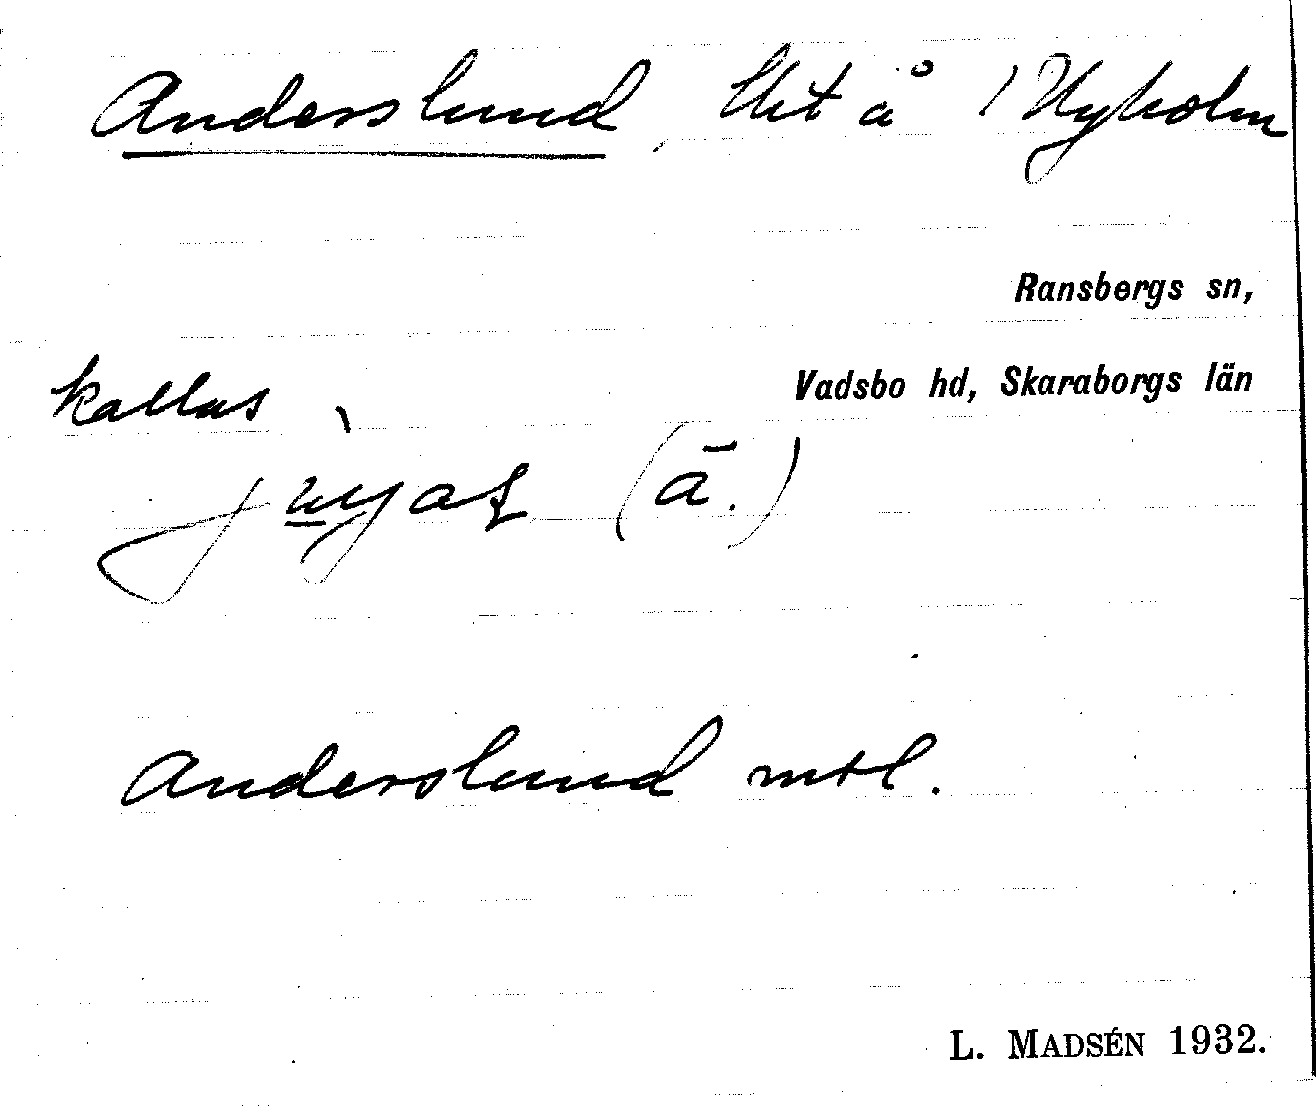 Anderslund, lht å 1 Nyholm
Ransbergs sn,
Vadsbo hd, Skaraborgs län
kallas
(ā.)
Anderslund mtl.
L. MADSÉN 1932.